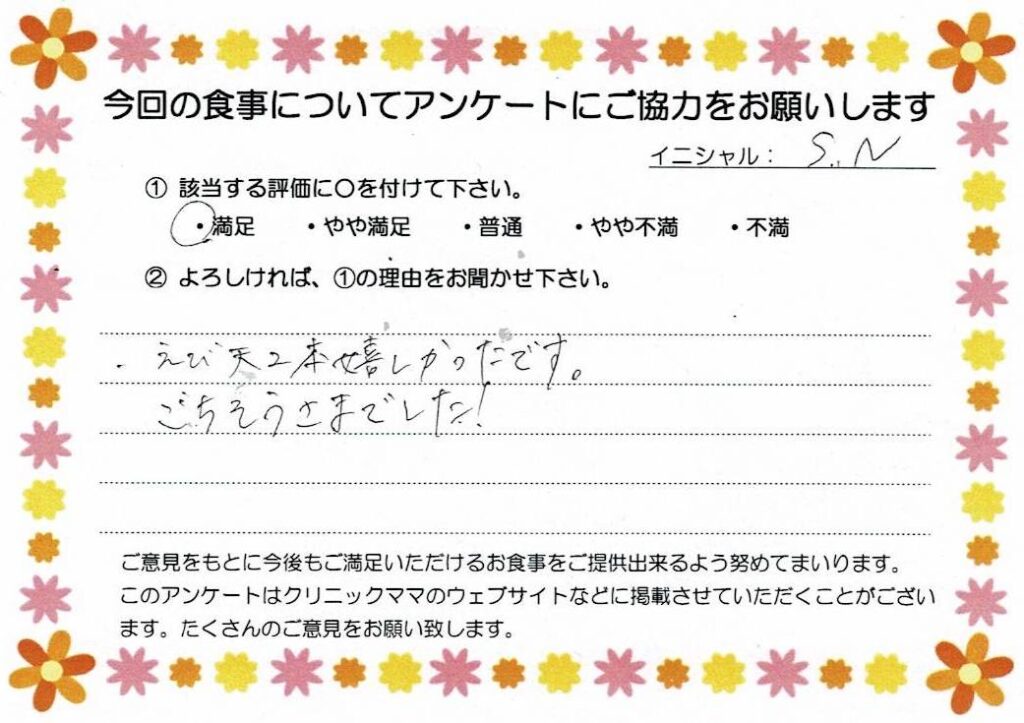 今回の食事についてアンケートにご協力をお願いします
イニシャル： S.N
① 該当する評価に〇を付けて下さい。
・満足 ・やや満足 ・普通 ・やや不満 ・不満
② よろしければ、①の理由をお聞かせ下さい。
・えび天2本嬉しかったです。
ごちそうさまでした!
ご意見をもとに今後もご満足いただけるお食事をご提供出来るよう努めてまいります。
このアンケートはクリニックママのウェブサイトなどに掲載させていただくことがござい
ます。たくさんのご意見をお願い致します。